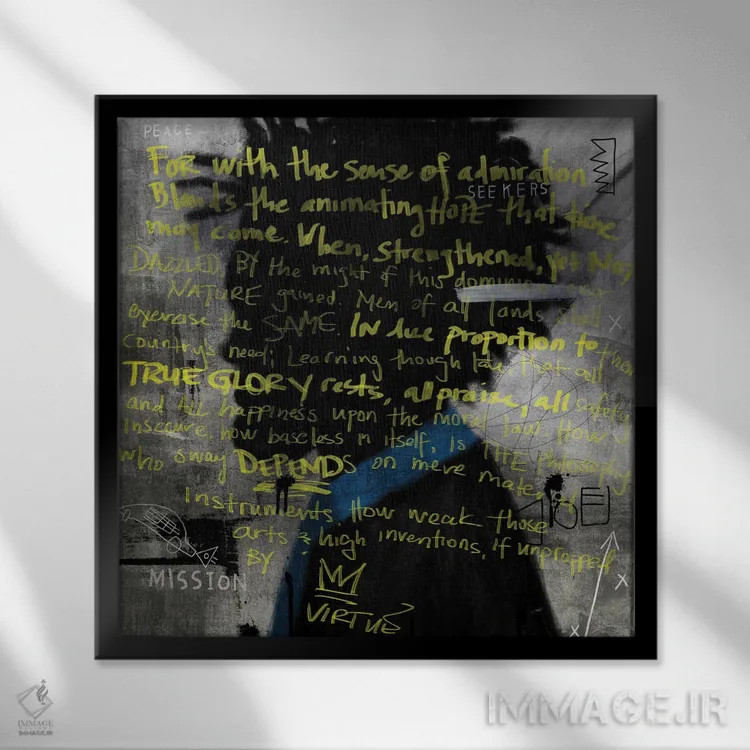 PEACE
FOR with the sense of admiration
SEEKERS
Blends the animating HOPE that time
may come. When, strengthened, yet NOT
DAZZLED BY the might of this dominion
NATURE gained. Men of all lands shall
exercise the SAME. IN due proportion to their
Country's need; Learning though late that all
TRUE GLORY rests, all praise, all safety
and All happiness upon the moral law. How
Insecure, how baseless in itself, is THE Philosophy
who sway DEPENDS on mere mater
Instruments. How weak those
arts & high inventions, if unpropped
BY
MISSION
VIRTUE
IMMAGE
IMMAGE.IR
IMMAGE.IR